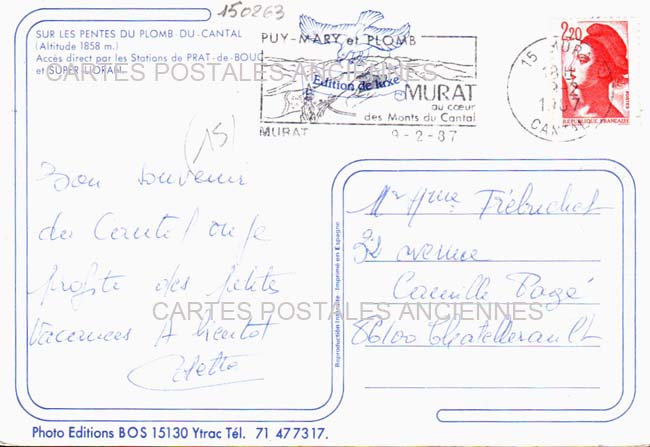 150263
SUR LES PENTES DU PLOMB-DU-CANTAL
(Altitude 1858 m.)
Accès direct par les Stations de PRAT-de-BOUC
et SUPER LIORAN
CARTES POSTALES ANCIENNES
PUY-MARY et PLOMB
Edition de luxe
MURAT
au cœur
des Monts du Cantal
MURAT
9-2-87
15 MURAT
CANTAL
2,20
REPUBLIQUE FRANÇAISE
(15)
Bon souvenir
du Cantal ou je
profite des petites
Vacances A bientot
Mr Mme Trébuchet
32 avenue
Camille Pagé
86100 Chatellerault
CARTES POSTALES ANCIENNES
Reproduction Interdite Imprimé en Espagne
Photo Editions BOS 15130 Ytrac Tél. 71 477317.